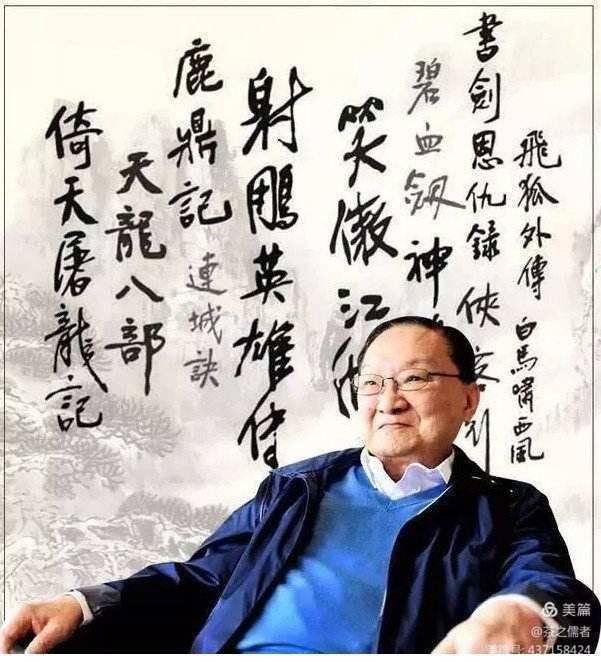 飛狐外傳
白馬嘯西風
書劍恩仇錄
俠客行
碧血劍
神
笑傲江湖
射鵰英雄传
鹿鼎記
連城訣
天龍八部
倚天屠龍記
美篇
@芬之儒者
美篇号: 437158424